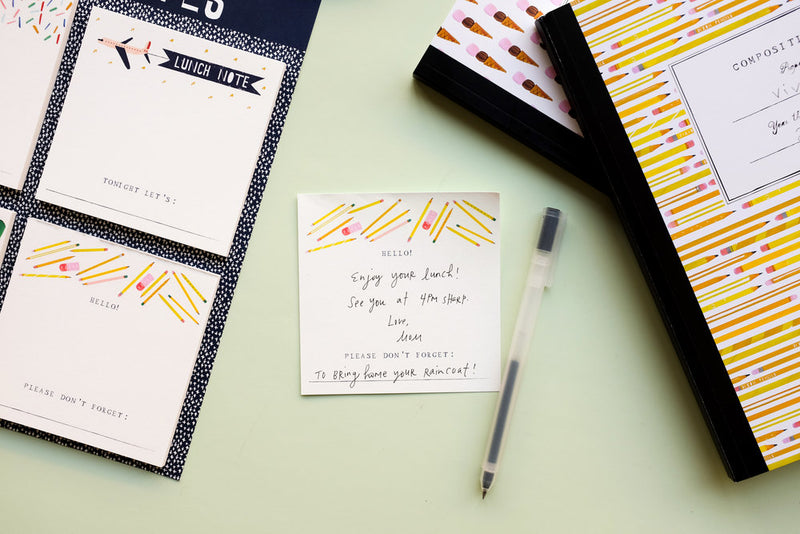 LUNCH NOTE
TONIGHT LET'S:
HELLO!
PLEASE DON'T FORGET:
HELLO!
Enjoy your lunch!
See you at 4PM SHARP.
Love,
Mom
PLEASE DON'T FORGET:
TO BRING home YOUR RAINCOAT!
COMPOSITI